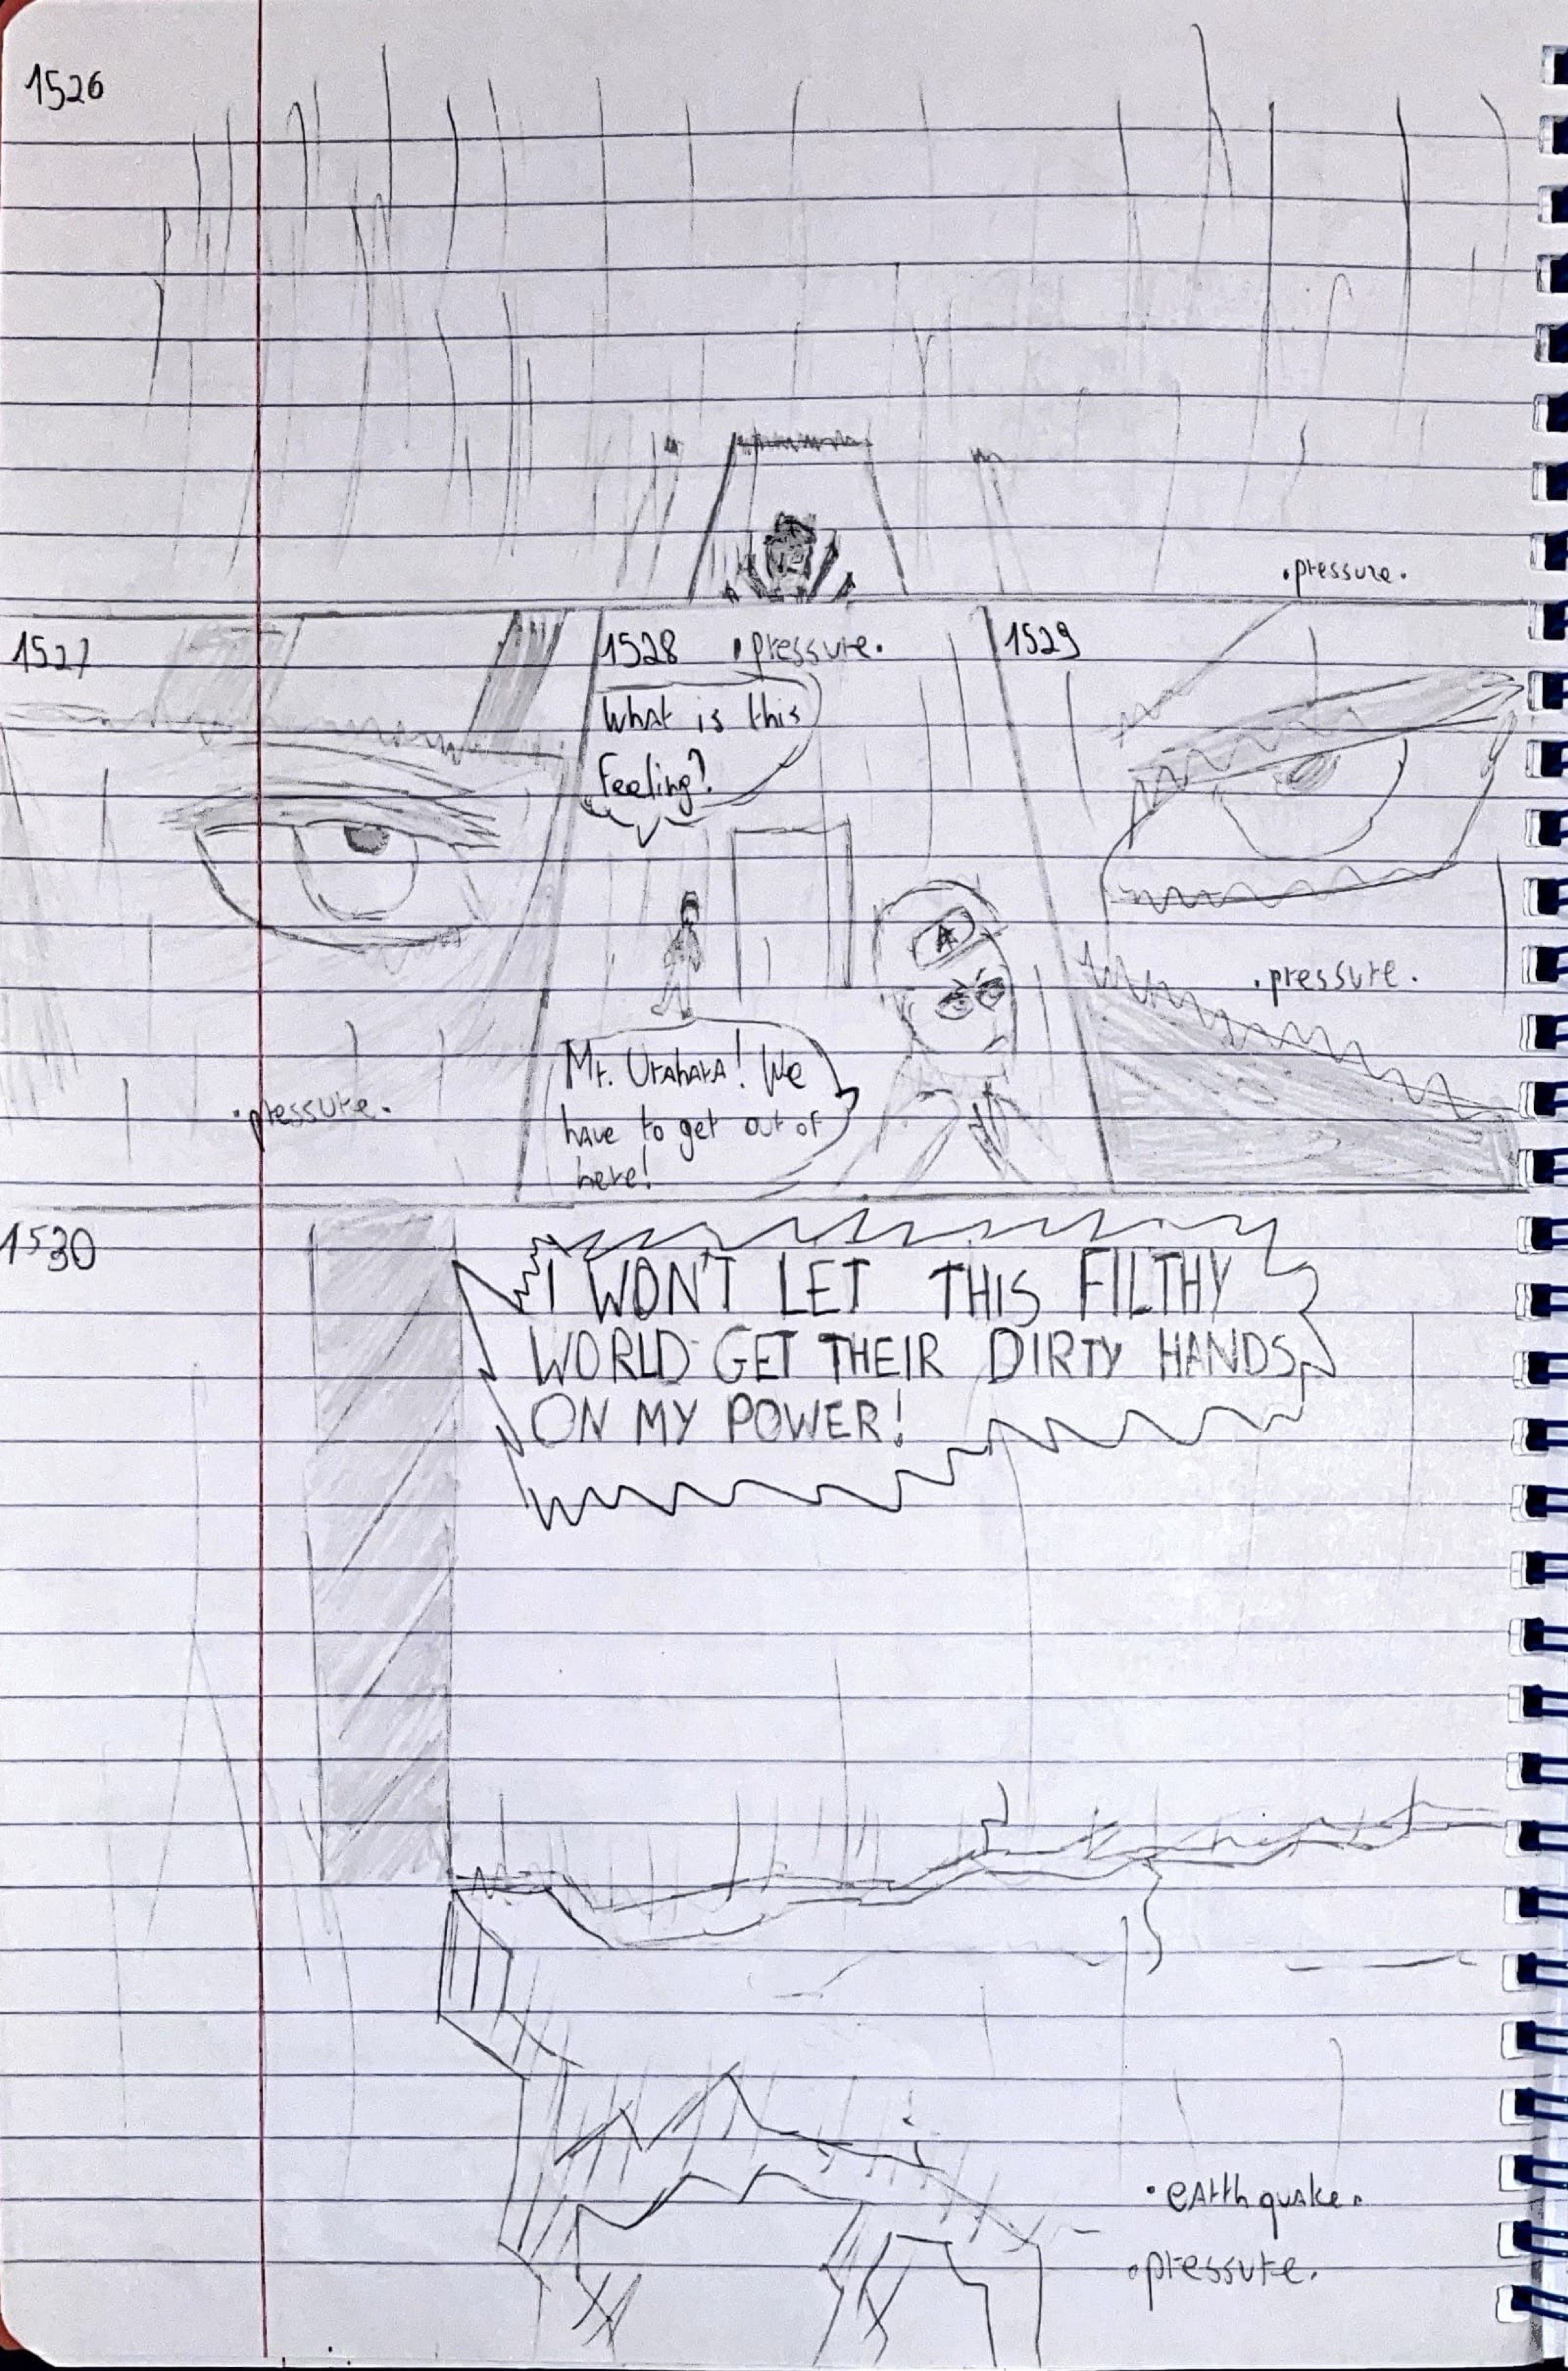 1526
.pressure.
1527
.pressure.
1528 .pressure.
What is this
Feeling?
A
Mr. Urahara! We
have to get out of
here!
1529
.pressure.
1530
I WON'T LET THIS FILTHY
WORLD GET THEIR DIRTY HANDS
ON MY POWER!
.earthquake.
.pressure.